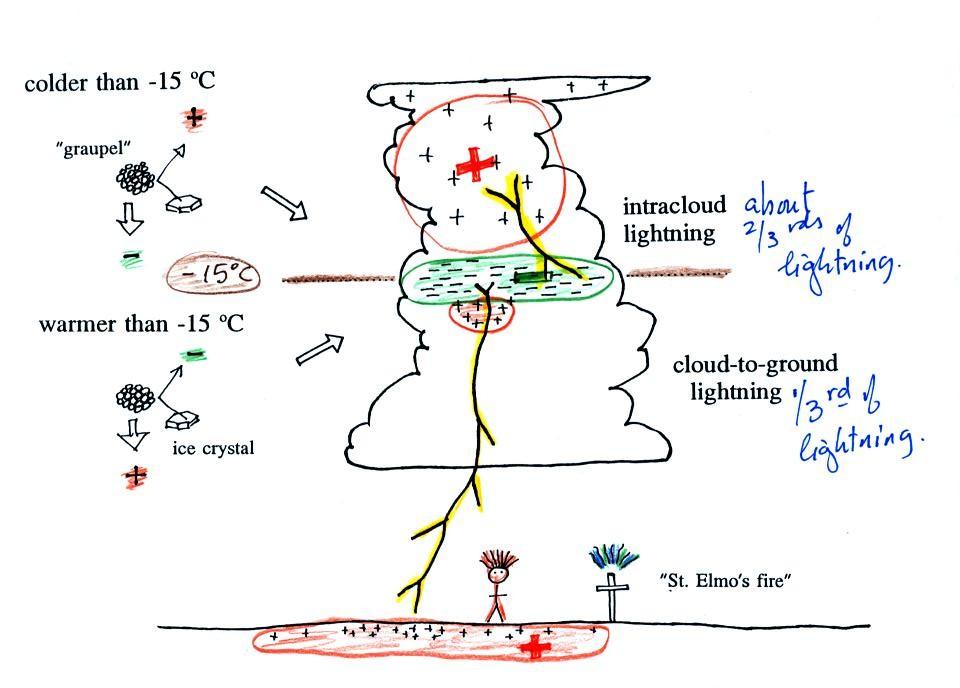 colder than -15 °C
+
"graupel"
-
-15°C
warmer than -15 °C
-
ice crystal
+
intracloud
lightning
about
2/3 rds of
lightning.
cloud-to-ground
lightning
1/3 rd of
lightning.
"St. Elmo's fire"